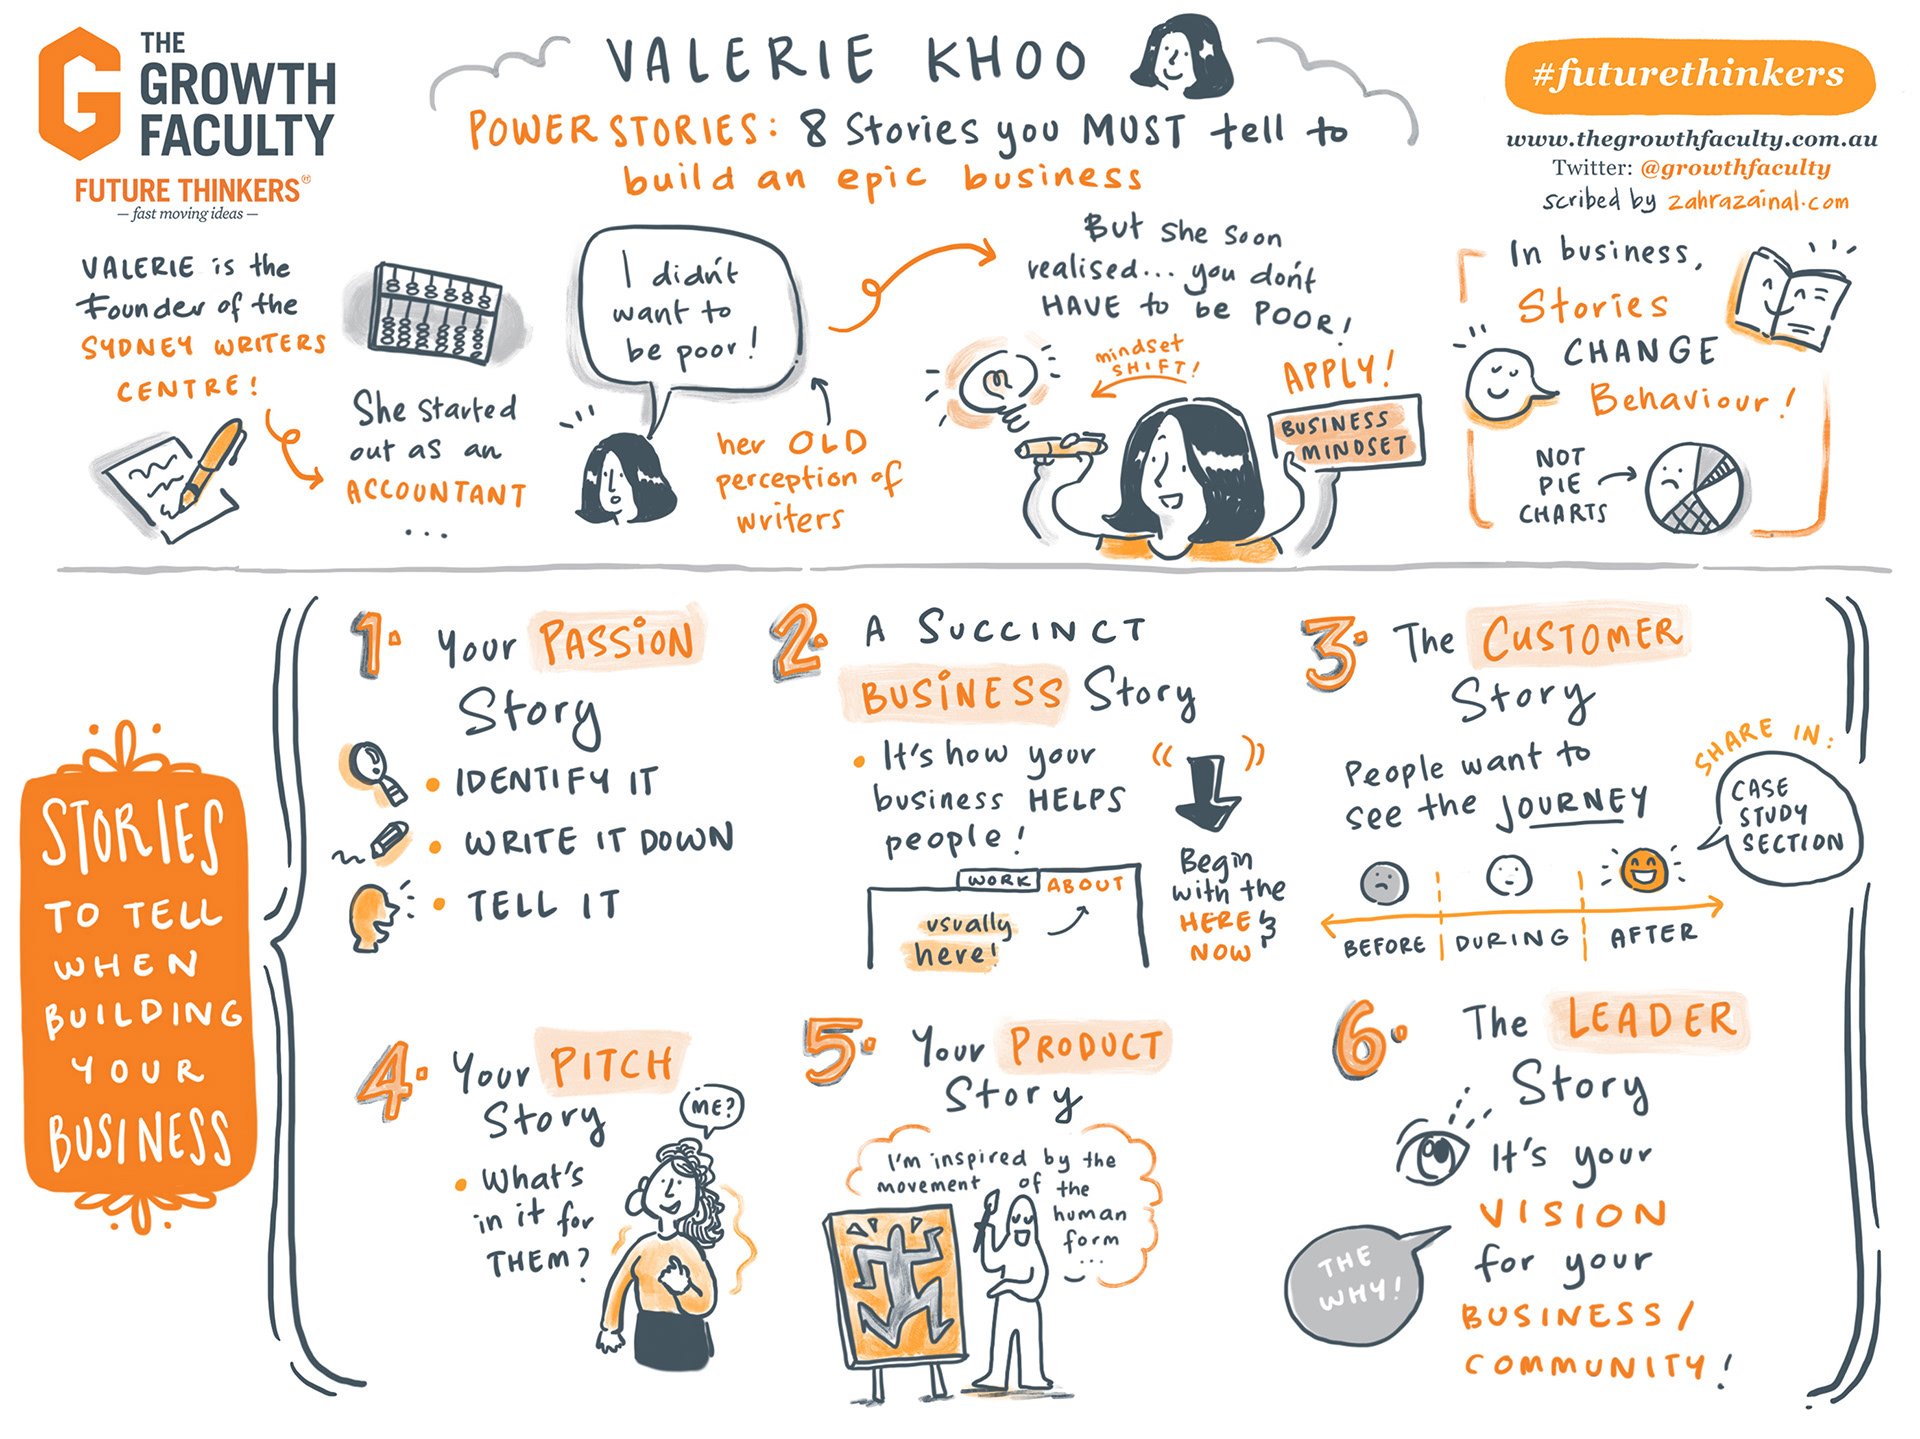 THE
GROWTH
FACULTY
FUTURE THINKERS®
— fast moving ideas —
VALERIE KHOO
POWER STORIES: 8 Stories you MUST tell to
build an epic business
#futurethinkers
www.thegrowthfaculty.com.au
Twitter: @growthfaculty
scribed by zahrazainal.com
VALERIE is the
Founder of the
SYDNEY WRITERS
CENTRE!
She started
out as an
ACCOUNTANT
...
I didn't
want to
be poor!
her OLD
perception of
writers
But she soon
realised... you don't
HAVE to be POOR!
mindset
SHIFT!
APPLY!
BUSINESS
MINDSET
In business,
Stories
CHANGE
Behaviour!
NOT
PIE
CHARTS
STORIES
TO TELL
WHEN
BUILDING
YOUR
BUSINESS
1. Your PASSION
Story
• IDENTIFY IT
• WRITE IT DOWN
• TELL IT
2. A SUCCINCT
BUSINESS Story
• It's how your
business HELPS
people!
WORK ABOUT
usually
here!
Begin
with the
HERE &
NOW
3. The CUSTOMER
Story
People want to
see the JOURNEY
SHARE IN:
CASE
STUDY
SECTION
BEFORE | DURING | AFTER
4. Your PITCH
Story
• What's
in it for
THEM?
ME?
5. Your PRODUCT
Story
I'm inspired by the
movement of the
human
form
...
6. The LEADER
Story
It's your
VISION
for your
BUSINESS/
COMMUNITY!
THE
WHY!